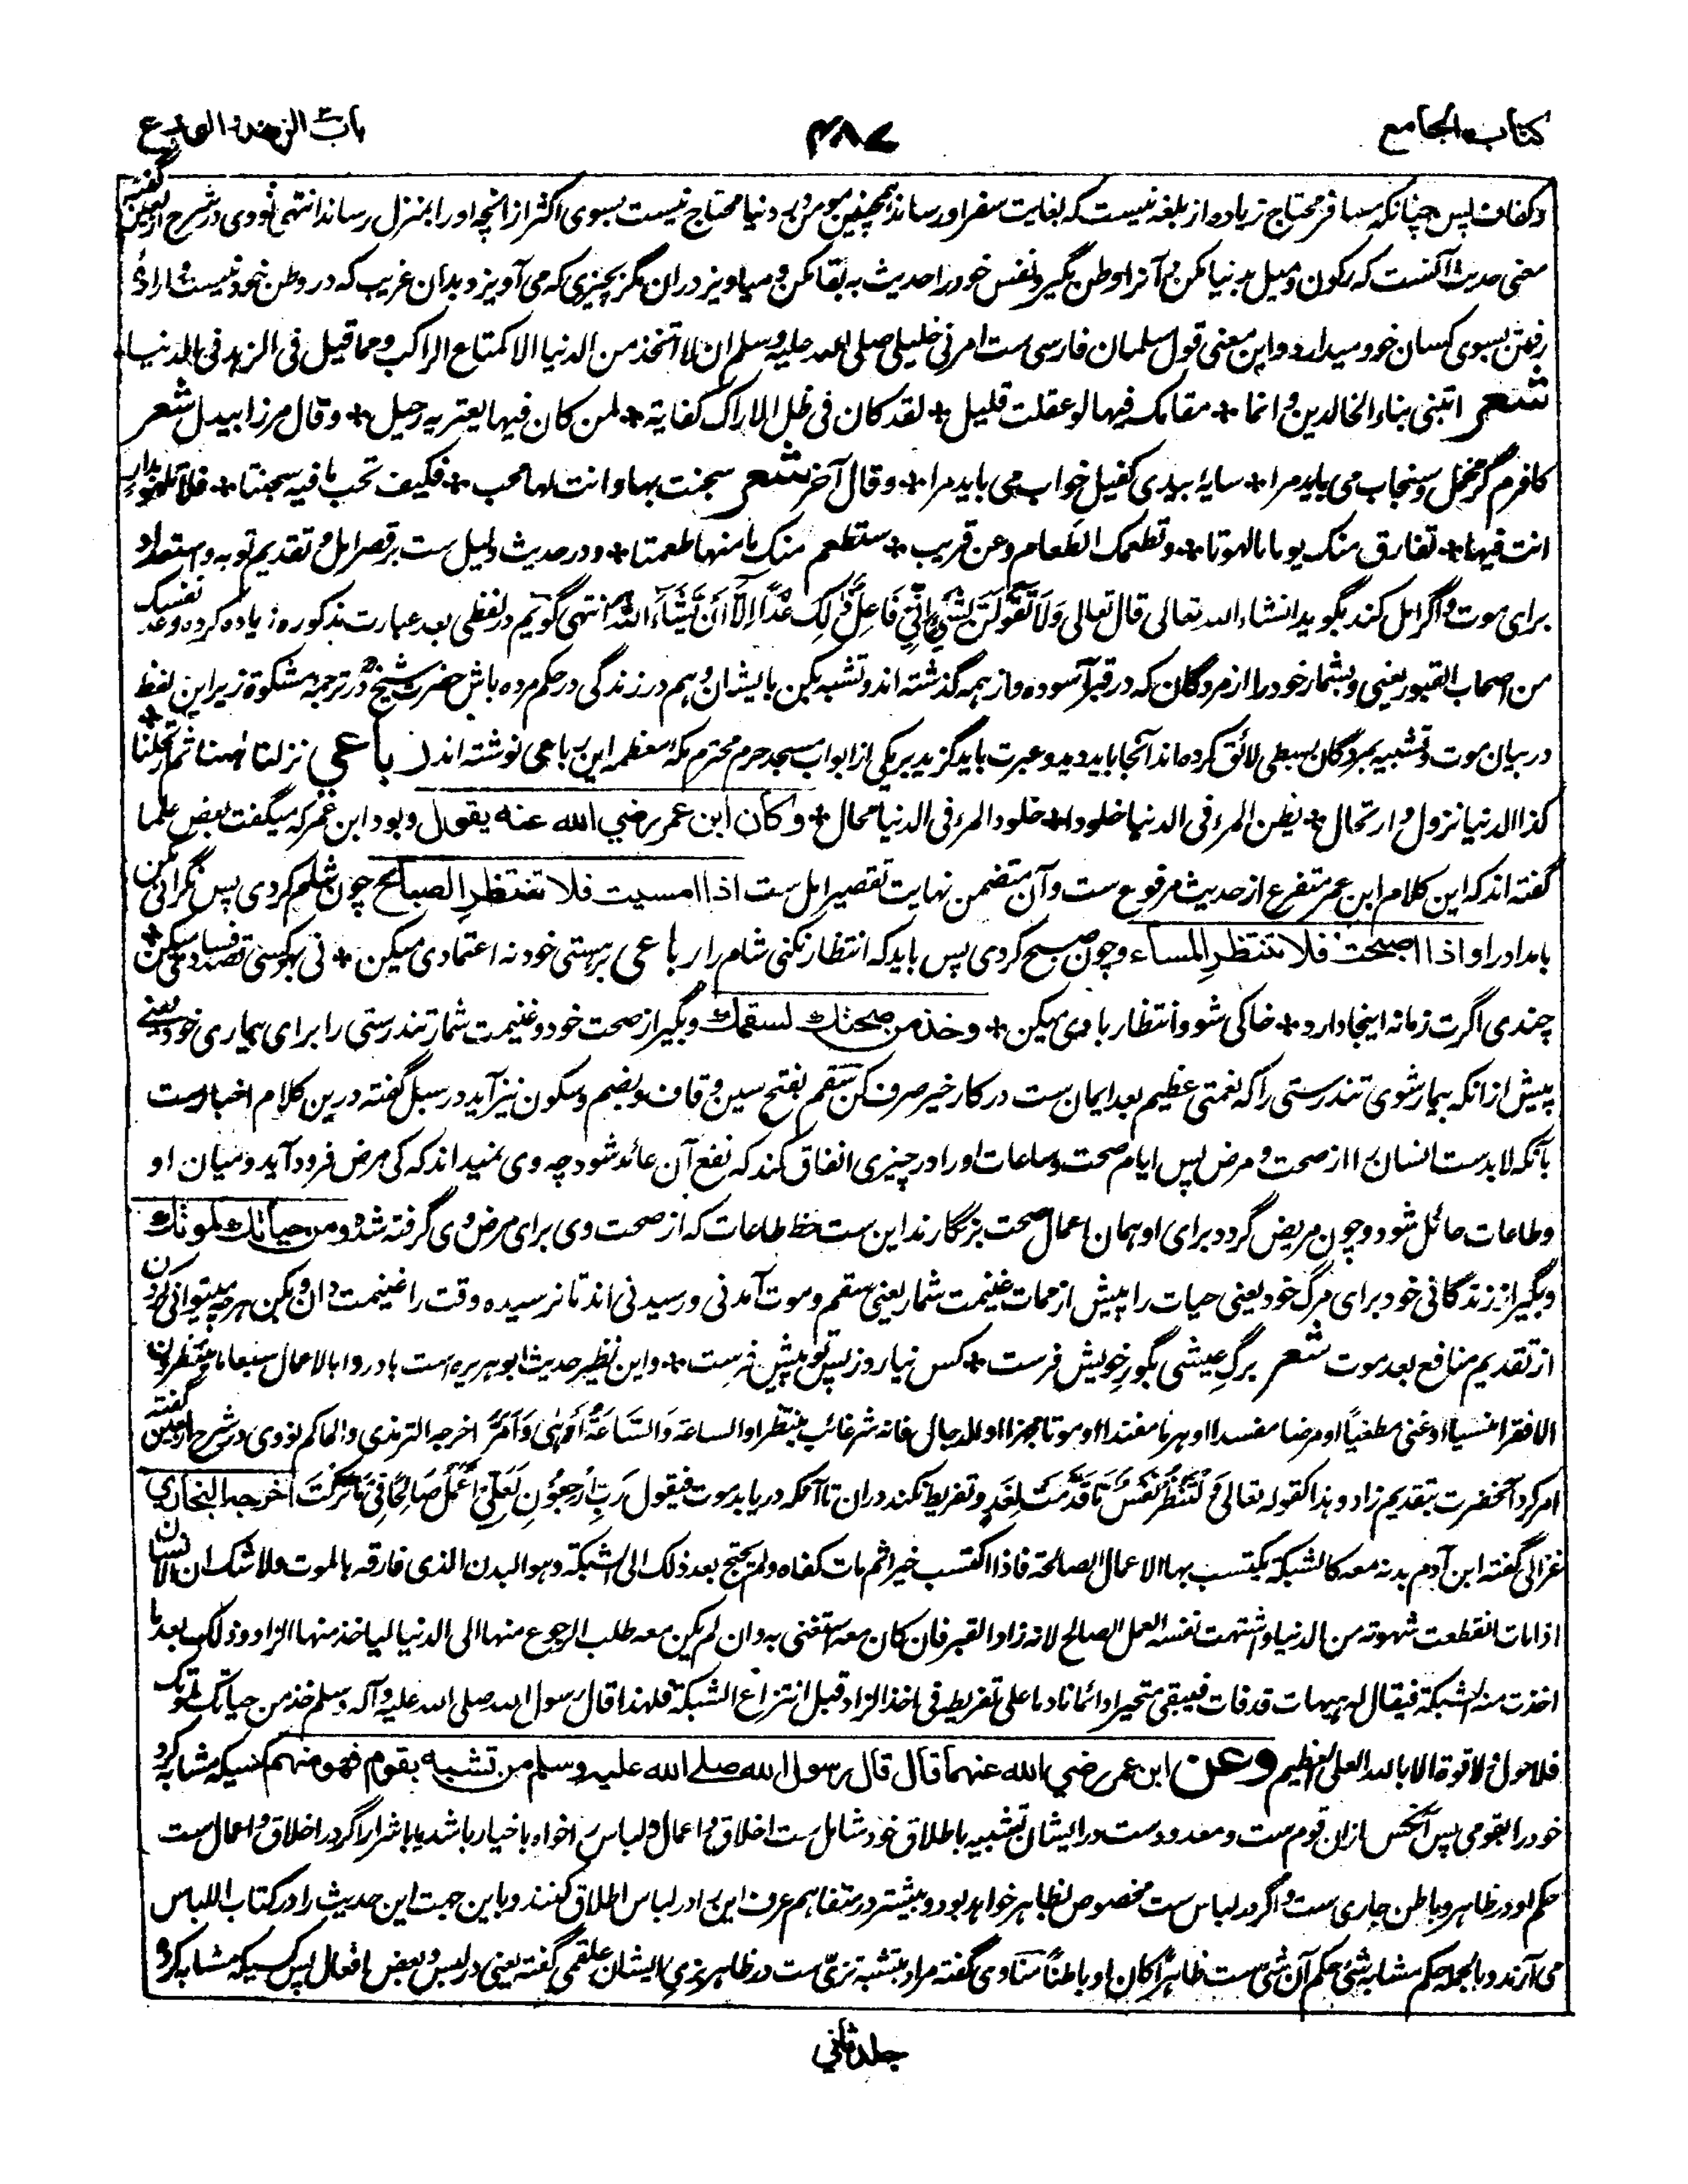 کتاب الجامع
۴۸۷
باب الزهد و الورع
و کفاف پس چنانکه مسافر محتاج زیاده از بلغه نیست که بغایت سفر او رساند همچنین مومن در دنیا محتاج نیست بسوی اکثر از آنچه او را بمنزل رساند انتهی نووی در شرح اربعین گفته
معنی حدیث آنست که رکون و میل بدنیا مکن و آنرا وطن مگیر و نفس خود را حدیث به بقا مکن و میاویز دران مگر بچیزی که می آویزد بدان غریب که در وطن خود نیست و ارادهٔ
رفتن بسوی کسان خود میدارد و این معنی قول سلمان فارسی ست امرنی خلیلی صلی الله علیه وسلم ان لا اتخذ من الدنیا الا کمتاع الراکب و مما قیل فی الزهد فی الدنیا
شعر اتبنی بناء الخالدین و انما * مقامک فیها لو عقلت قلیل * لقد کان فی ظل الاراک کفایة * لمن کان فیها یعتریه رحیل * و قال مرزا بیدل شعر
کافرم گر مخمل و سنجاب می باید مرا * سایهٔ بیدی کفیل خواب می باید مرا * و قال آخر شعر سجنت بها و انت لها محب * فکیف تحب ما فیه سجنتا *
انت فیها * تفارق منک یوما ما لهوتا * و تطعمک الطعام و عن قریب * ستطعم منک ما منها طعمتا * و در حدیث دلیل ست بر قصر امل و تقدیم توبه و استعداد
برای موت و اگر امل کند بگوید انشاء الله تعالی قال تعالی وَلَا تَقُولَنَّ لِشَيْءٍ اِنِّي فَاعِلٌ ذٰلِكَ غَدًا اِلَّا اَنْ يَّشَآءَ اللهُ انتهی گویم در لفظی بعد عبارت مذکوره زیاده کرده وعد نفسک
من اصحاب القبور یعنی و بشمار خود را از مردگان که در قبر آسوده و از همه گذشته اند و تشبه بکن بایشان و هم در زندگی در حکم مرده باش حضرت شیخ در ترجمهٔ مشکوة زیر این لفظ
در بیان موت و تشبیه بمردگان بسطی لائق کرده اند آنجا باید دید و عبرت باید گزید بر یکی از ابواب مسجد حرم محترم مکهٔ معظمه این رباعی نوشته اند رباعی نزلنا ههنا ثم ارتحلنا *
کذا الدنیا نزول و ارتحال * یظن المرء فی الدنیا خلودا * خلود المرء فی الدنیا محال * و کان ابن عمر رضي الله عنه یقول و بود ابن عمر که میگفت بعض علما
گفته اند که این کلام ابن عمر متفرع از حدیث مرفوع ست و آن متضمن نهایت تقصیر امل ست اذا امسیت فلا تنتظر الصباح چون شام کردی پس نگرانی مکن
بامداد را و اذا اصبحت فلا تنتظر المساء و چون صبح کردی پس باید که انتظار نکنی شام را رباعی بر هستی خود نه اعتمادی میکن *
چندی اگرت زمانه اینجا دارد * خاکی شو و انتظار بادی میکن * و خذ من صحتك لسقمك و بگیر از صحت خود و غنیمت شمار تندرستی را برای بیماری خود یعنے
پیش از آنکه بیمار شوی تندرستی را که نعمتی عظیم بعد ایمان ست در کار خیر صرف کن سقم بفتح سین و قاف و بضم و سکون نیز آید در سبل گفته درین کلام اخبارست
بآنکه لابدست انسان را از صحت و مرض پس ایام صحت و ساعات او را در چیزی انفاق کند که نفع آن عائد شود چه وی نمیداند که کی مرض فرود آید و میان او
و طاعات حائل شود و چون مریض گردد برای او همان اعمال صحت بزنگارند این ست حظ طاعات که از صحت وی برای مرض وی گرفته شد و من حیاتك لموتك
و بگیر از زندگانی خود برای مرگ خود یعنی حیات را پیش از ممات غنیمت شمار یعنی سقم و موت آمدنی و رسیدنی اند تا نرسیده وقت را غنیمت دان و بکن هرچه میتوانی کردن
از تقدیم منافع بعد موت شعر برگ عیشی بگور خویش فرست * کس نیارد ز پس تو پیش فرست * و این نظیر حدیث ابو هریره است بادروا بالاعمال سبعا ما تنتظرون
الا فقرا منسیا او غنی مطغیا او مرضا مفسدا او هرما مفندا او موتا مجهزا او الدجال فانه شر غائب ینتظر او الساعة وَالسَّاعَةُ اَدْهٰی وَاَمَرُّ اخرجه الترمذی و الحاکم نووی در شرح اربعین گفته
امر کرد آنحضرت بتقدیم زاد و هذا کقوله تعالی وَلْتَنْظُرْ نَفْسٌ مَّا قَدَّمَتْ لِغَدٍ و تفریط نکند دران تا آنکه دریابد موت فیقول رَبِّ ارْجِعُوْنِ لَعَلِّیْ اَعْمَلُ صَالِحًا فِیْمَا تَرَکْتُ اخرجه البخاري
غزالی گفته ابن آدم بدنه معه کالشبکة یکتسب بها الاعمال الصالحة فاذا اکتسب خیرا ثم مات کفاه و لم یحتج بعد ذلک الی الشبکة و هو البدن الذی فارقه بالموت و لا شک ان الانسان
اذا مات انقطعت شهوته من الدنیا و اشتهت نفسه العمل الصالح لانه زاد القبر فان کان معه استغنی به و ان لم یکن معه طلب الرجوع منها الی الدنیا لیاخذ منها الزاد و ذلک بعد ما
اخذت منه الشبکة فیقال له هیهات قد فات فیبقی متحیرا دائما نادما علی تفریطه فی اخذ الزاد قبل انتزاع الشبکة فلهذا قال رسول الله صلی الله علیه و آله وسلم خذ من حیاتک لموتک
فلا حول و لا قوة الا بالله العلی العظیم وعن ابن عمر رضي الله عنهما قال قال رسول الله صلے الله علیه وسلم من تشبه بقوم فهو منهم کسیکه مشابه کرد
خود را بقومی پس آنکس ازان قوم ست و معدودست در ایشان تشبیه باطلاق خود شامل ست اخلاق و اعمال و لباس را خواه باخیار باشد یا باشرار اگر در اخلاق و اعمال ست
حکم او در ظاهر و باطن جاری ست و اگر در لباس ست مخصوص بظاهر خواهد بود و بیشتر در متفاهم عرف این را در لباس اطلاق کنند و باین جهت این حدیث را در کتاب اللباس
می آرند و بالجمله حکم مشابه شئ حکم آن شئ ست ظاهرا کان او باطنا مناوی گفته مراد بتشبه تزیّ ست در ظاهر بزی ایشان علقمی گفته یعنی در لبس و بعض افعال پس کسیکه مشابه کرد
جلد ثاني